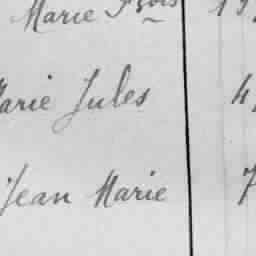 Marie Fçois
Marie Jules 4
Jean Marie 7